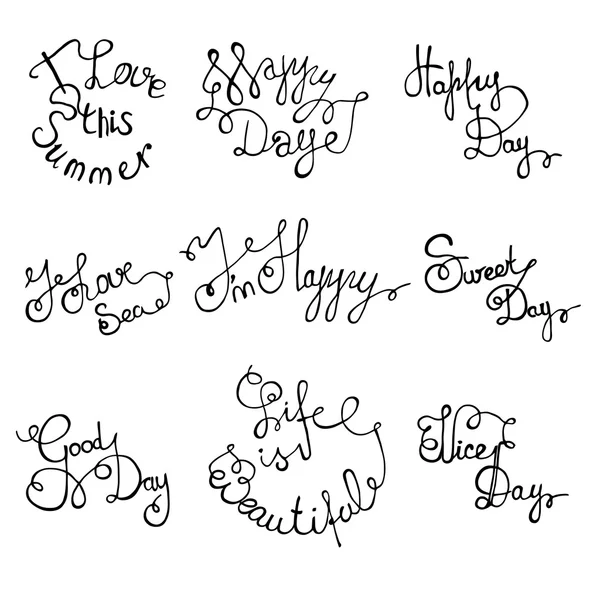 I Love
this
Summer
Happy
Daye
Happy
Day
I Love
Sea
I'm Happy
Sweet
Day
Good
Day
Life
is
Beautiful
Nice
Day